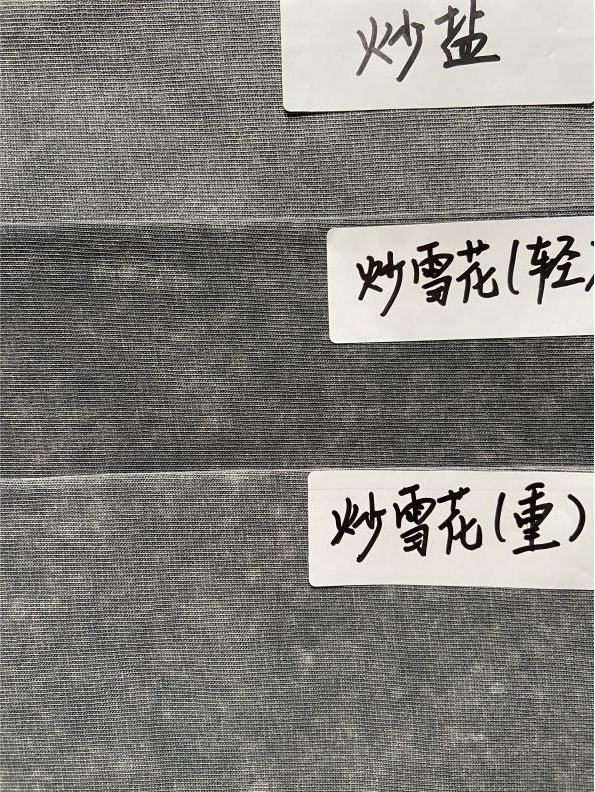 炒盐
炒雪花(轻)
炒雪花(重)